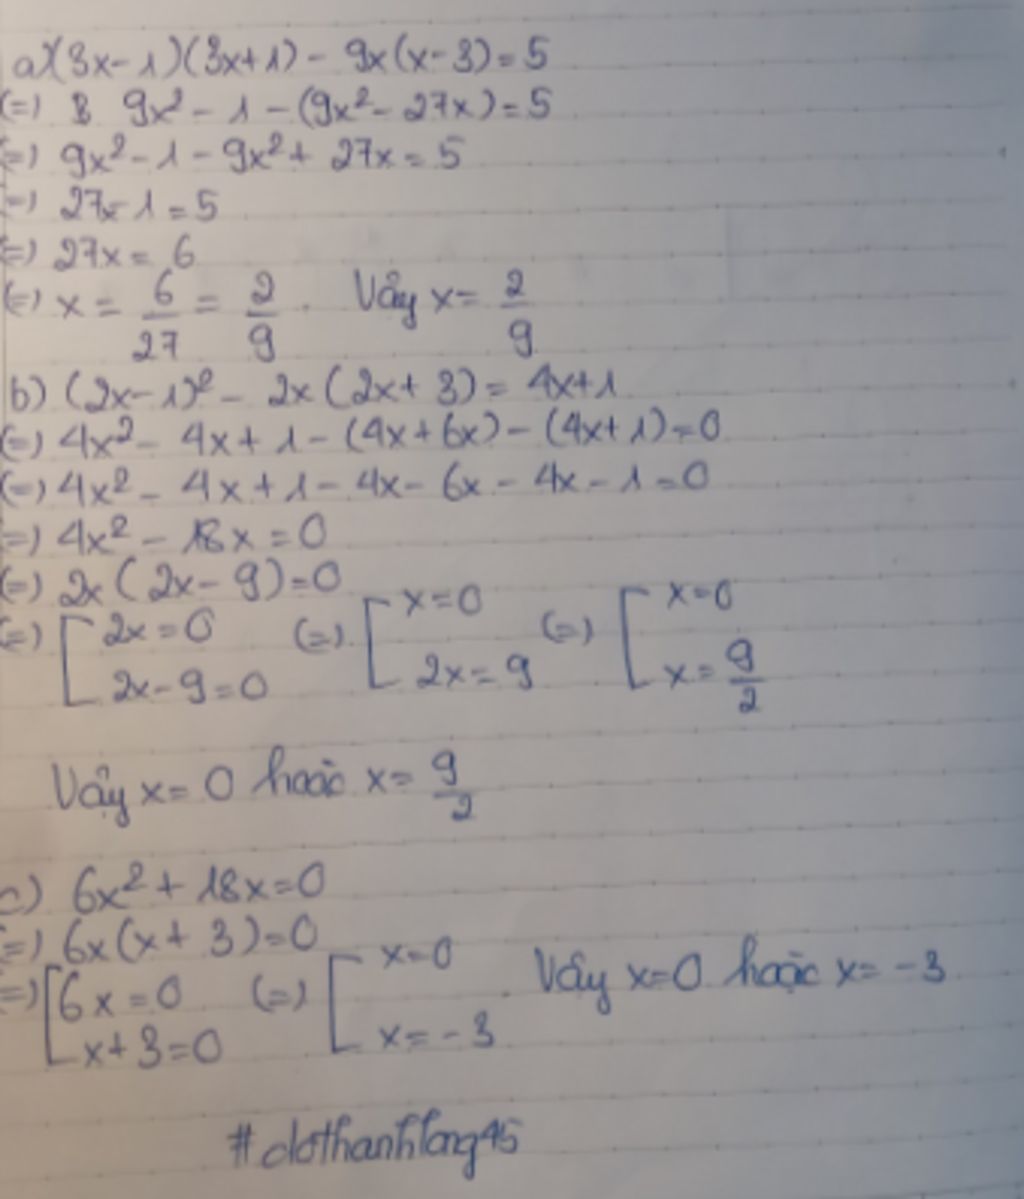 a) (3x-1)(3x+1) - 9x(x-3) = 5
(=) 9x² - 1 - (9x² - 27x) = 5
(=) 9x² - 1 - 9x² + 27x = 5
(=) 27x - 1 = 5
(=) 27x = 6
(=) x = 6/27 = 2/9. Vậy x = 2/9
b) (2x-1)² - 2x(2x+3) = 4x+1
(=) 4x² - 4x + 1 - (4x+6x) - (4x+1) = 0
(=) 4x² - 4x + 1 - 4x - 6x - 4x - 1 = 0
(=) 4x² - 18x = 0
(=) 2x(2x-9) = 0
(=) [ 2x = 0 (=) [ x = 0 (=) [ x = 0
2x - 9 = 0 2x = 9 x = 9/2
Vậy x = 0 hoặc x = 9/2
c) 6x² + 18x = 0
(=) 6x(x+3) = 0
(=) [ 6x = 0 (=) [ x = 0 . Vậy x = 0 hoặc x = -3
x + 3 = 0 x = -3
#dothanhlong45